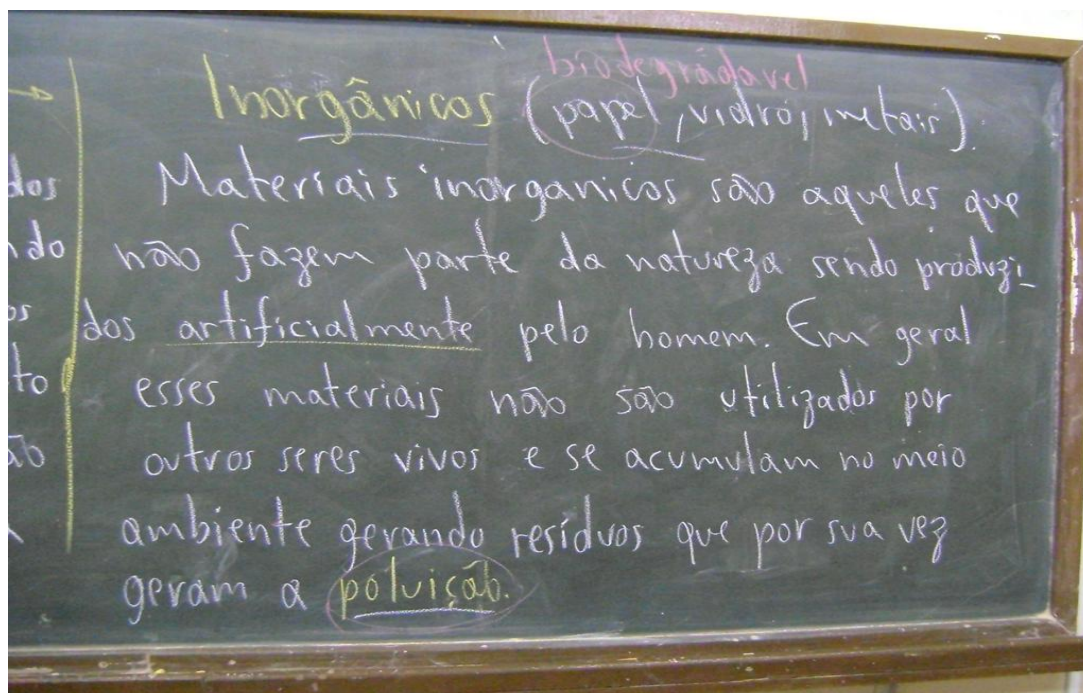 biodegrádavel
Inorgânicos (papel, vidro, metais).
dos Materiais inorganicos são aqueles que
ndo não fazem parte da natureza sendo produzi-
os dos artificialmente pelo homem. Em geral
to esses materiais não são utilizados por
ão outros seres vivos e se acumulam no meio
ambiente gerando resíduos que por sua vez
geram a poluição.